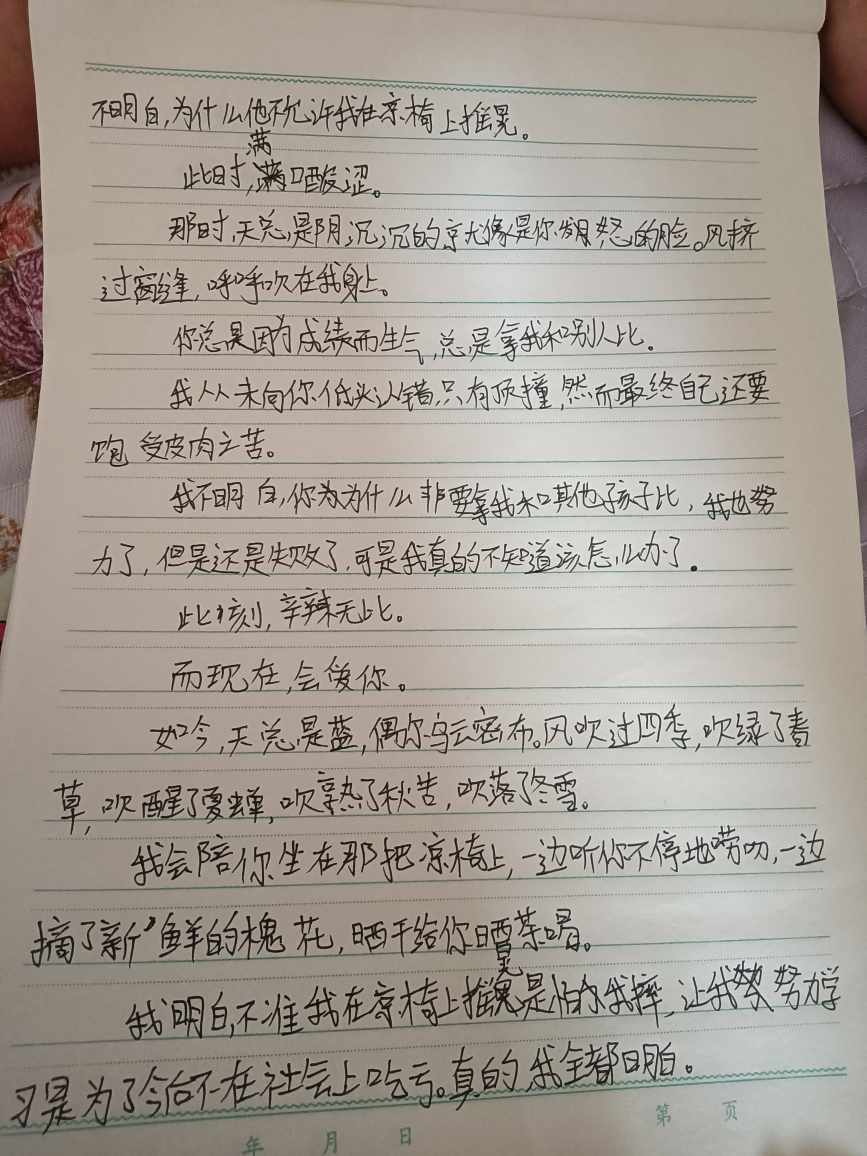 不明白,为什么他不允许我在凉椅上摇晃。
满
此时,满口酸涩。
那时,天总是阴沉沉的就像是你发怒的脸。风挤
过窗缝,呼呼吹在我身上。
你总是因为成绩而生气,总是拿我和别人比。
我从未向你低头认错,只有顶撞,然而最终自己还要
饱受皮肉之苦。
我不明白,你为为什么非要拿我和其他孩子比,我也努
力了,但是还是失败了,可是我真的不知道该怎么办了。
此刻,辛辣无比。
而现在,会爱你。
如今,天总是蓝,偶尔乌云密布。风吹过四季,吹绿了春
草,吹醒了夏蝉,吹熟了秋苦,吹落了冬雪。
我会陪你坐在那把凉椅上,一边听你不停地唠叨,一边
摘了新鲜的槐花,晒干给你晒茶喝。
晃
我明白,不准我在凉椅上摇是怕你我摔,让我努力学
习是为了今后不在社会上吃亏。真的,我全都明白。
第 页
年 月 日